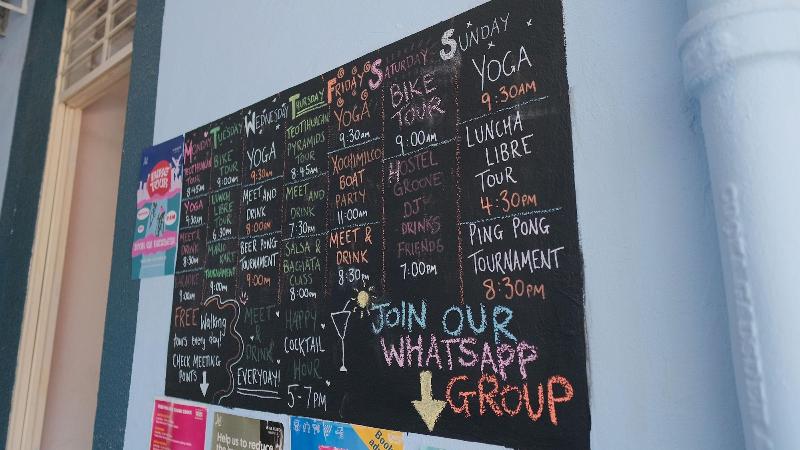 MONDAY
TEOTIHUACAN
TOUR
8:45AM
YOGA
9:30AM
MEET &
DRINK
8:30PM
9:00PM
TUESDAY
BIKE
TOUR
9:00AM
LUCHA
LIBRE
TOUR
6:30PM
MARIO KART
TOURNAMENT
9:00PM
WEDNESDAY
YOGA
9:30AM
MEET AND
DRINK
8:00PM
BEER PONG
TOURNAMENT
9:00PM
THURSDAY
TEOTIHUACAN
PYRAMIDS
TOUR
8:45AM
MEET AND
DRINK
7:30PM
SALSA &
BACHATA
CLASS
8:00PM
FRIDAY
YOGA
9:30AM
XOCHIMILCO
BOAT
PARTY
11:00AM
MEET &
DRINK
8:30PM
SATURDAY
BIKE
TOUR
9:00AM
HOSTEL
GROOVE
DJ
DRINKS
FRIENDS
7:00PM
SUNDAY
YOGA
9:30AM
LUNCHA
LIBRE
TOUR
4:30PM
PING PONG
TOURNAMENT
8:30PM
FREE Walking
tours every day!
CHECK MEETING
POINTS
MEET
&
DRINK
EVERYDAY!
HAPPY
COCKTAIL
HOUR
5-7PM
JOIN OUR
WHATSAPP
GROUP
TOUR
Help us to reduce
Book